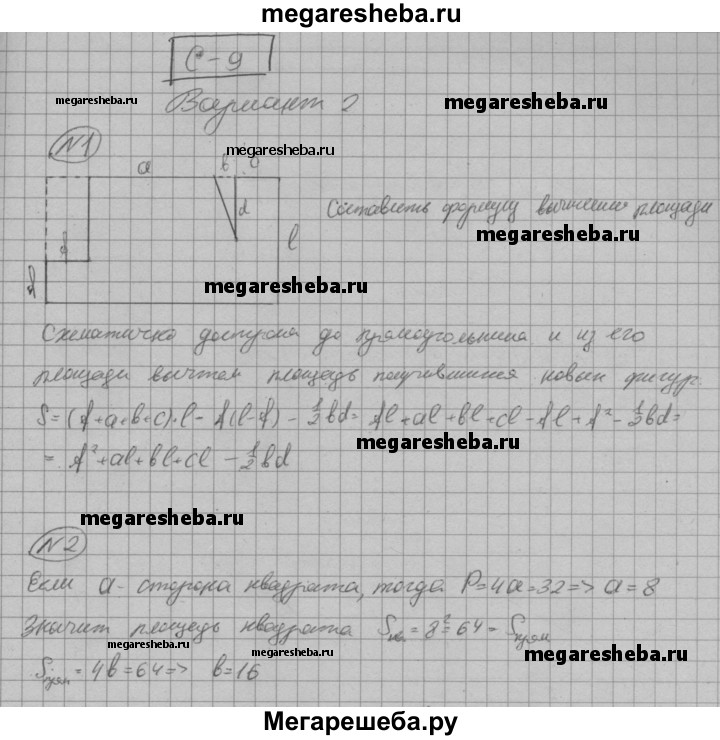 megaresheba.ru
С-9
megaresheba.ru Вариант 2 megaresheba.ru
N1 megaresheba.ru
a b c
d Составить формулу вычисления площади
f l megaresheba.ru
f megaresheba.ru
Схематично достроена до прямоугольника и из его
площади вычтем площадь получившихся новых фигур.
S=(f+a+b+c)·l-f(l-f)-1/2bd=fl+al+bl+cl-fl+f²-1/2bd=
megaresheba.ru
=f²+al+bl+cl-1/2bd
megaresheba.ru
N2 megaresheba.ru
Если a-сторона квадрата, тогда P=4a=32=>a=8
Значит площадь квадрата Sкв.=8²=64=Sпрям
megaresheba.ru megaresheba.ru
Sпрям.=4b=64=> b=16
Мегарешеба.ру